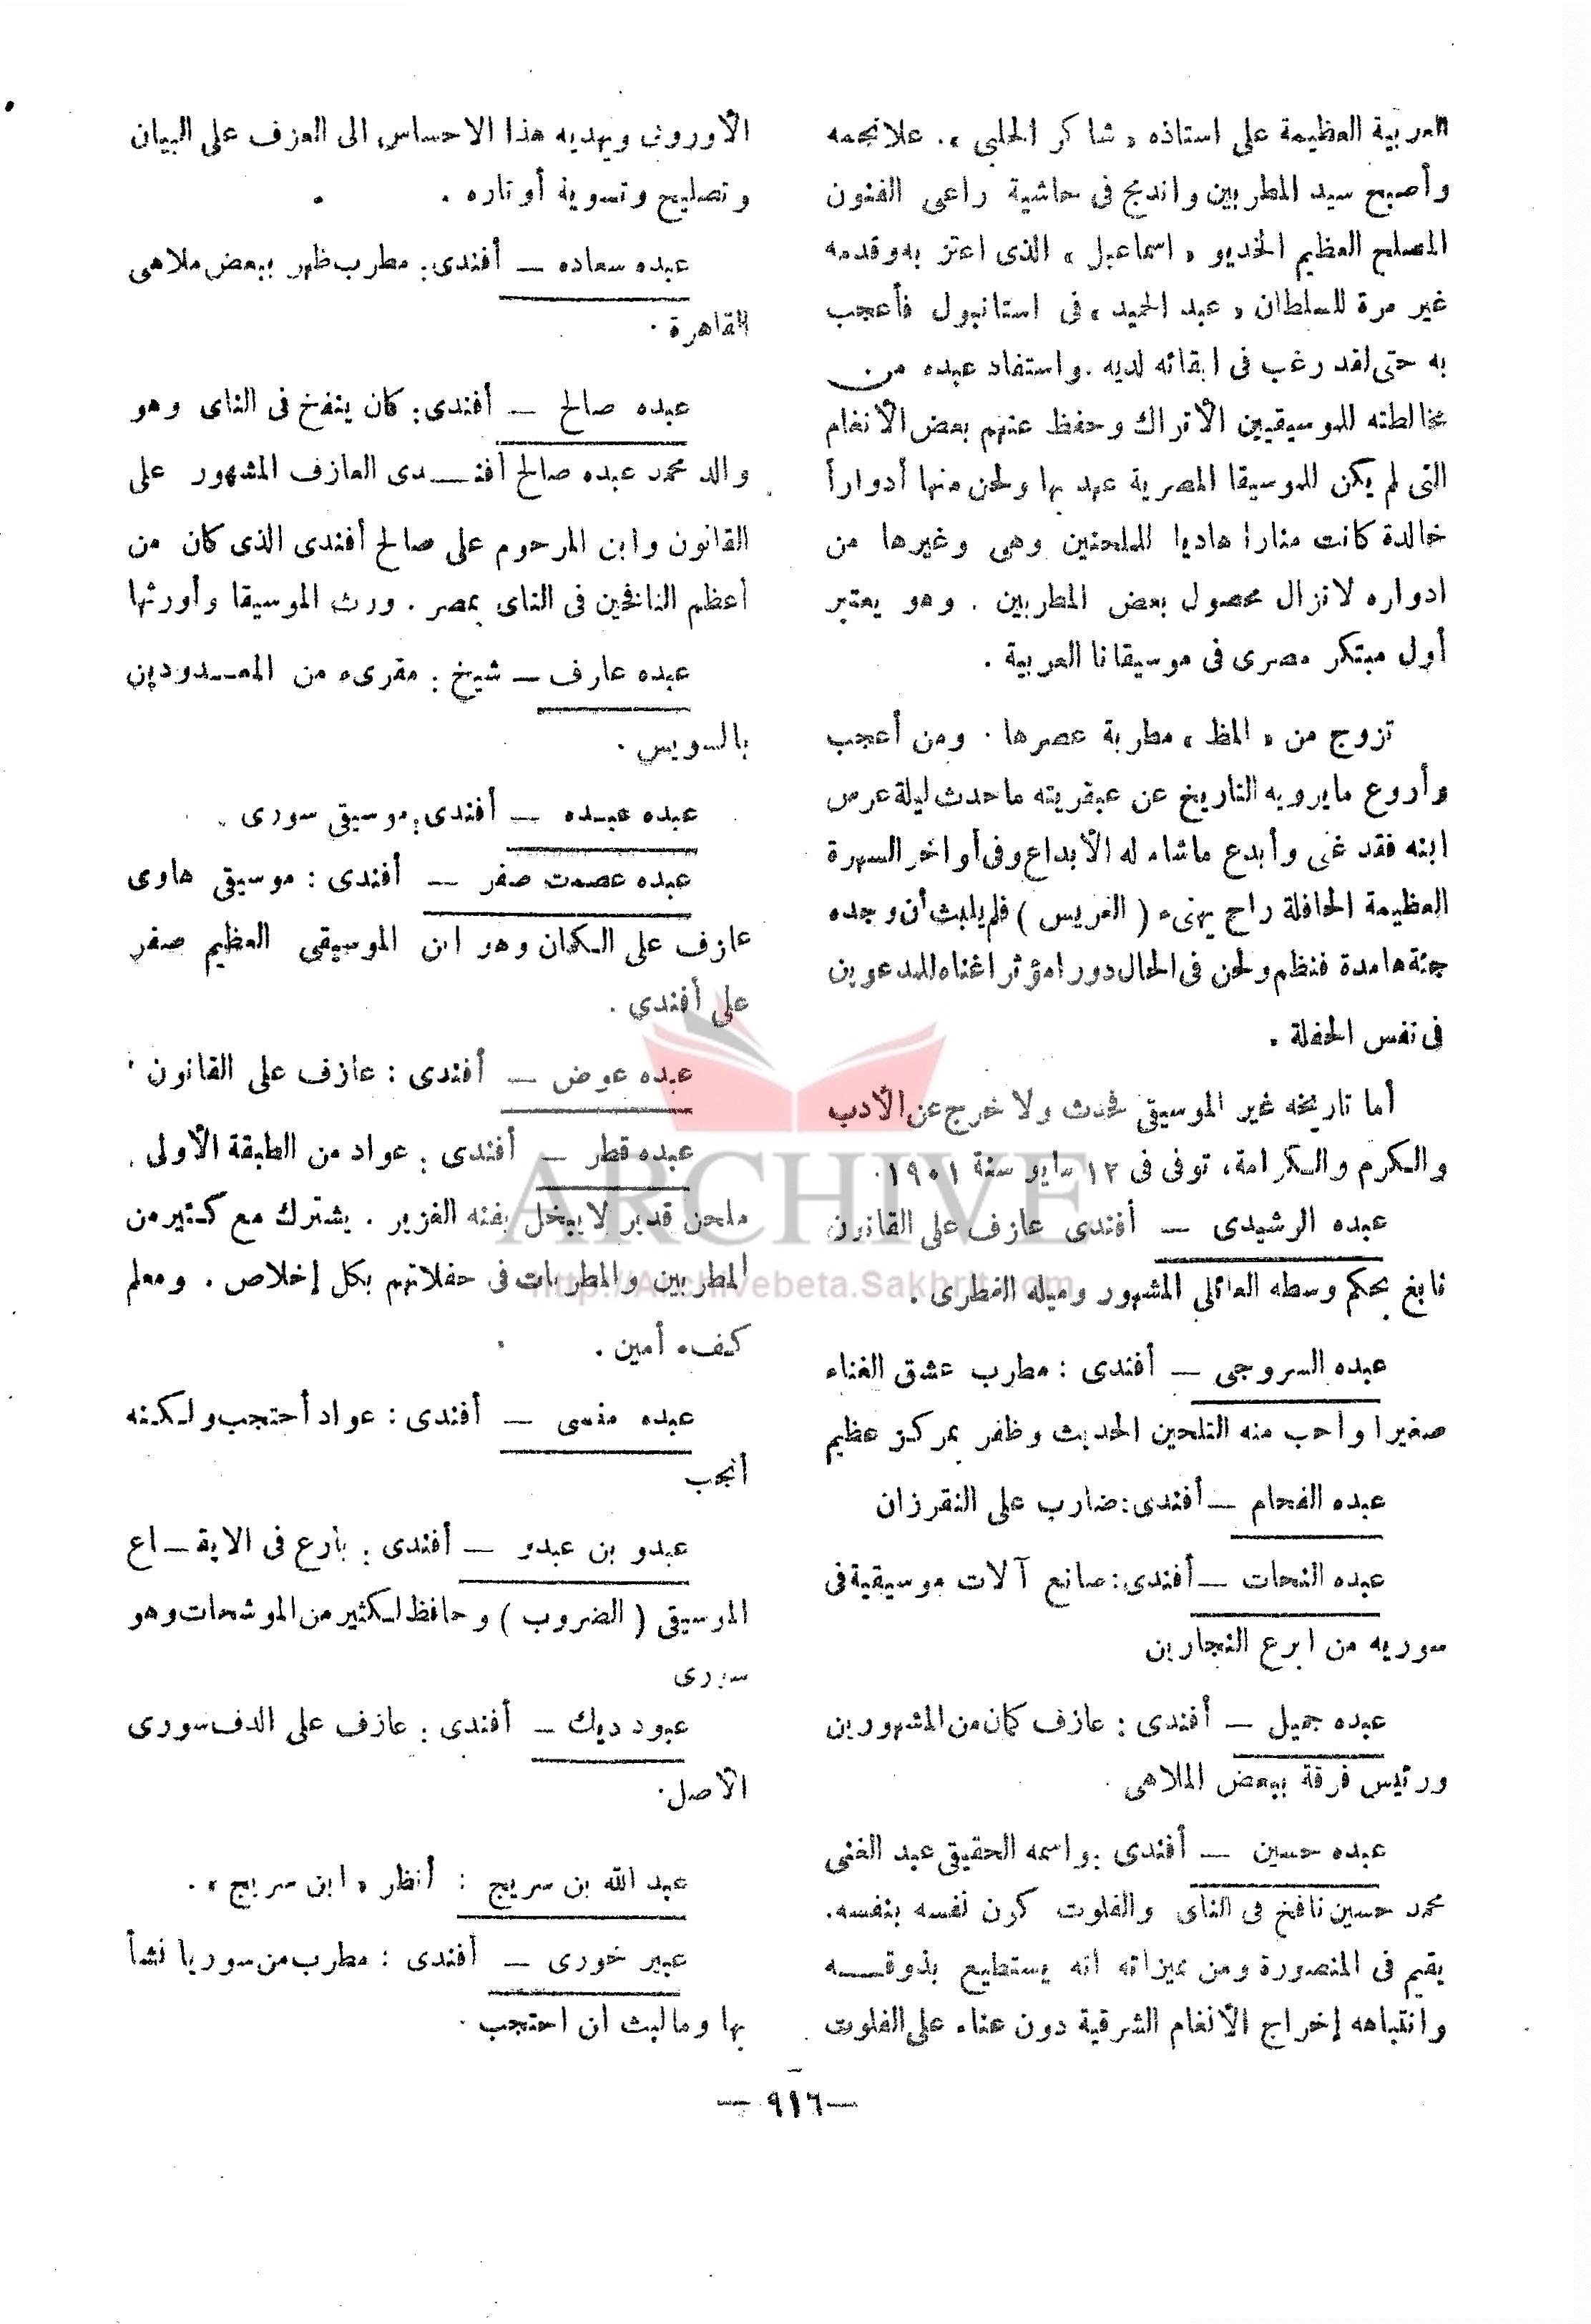 العربية العظيمة على استاذه «شاكر الحلبى». علانجمه
وأصبح سيد المطربين واندمج فى حاشية راعى الفنون
المصلح العظيم الخديو «اسماعيل» الذى اعتز به وقدمه
غير مرة للسلطان «عبد الحميد» فى استانبول فأعجب
به حتى لقد رغب فى ابقائه لديه. واستفاد عبده من
مخالطته للموسيقيين الأتراك وحفظ عنهم بعض الأنغام
التى لم يكن للموسيقا المصرية عهد بها ولحن منها أدواراً
خالدة كانت منارا هاديا للملحنين وهى وغيرها من
ادواره لاتزال محصول بعض المطربين. وهو يعتبر
أول مبتكر مصرى فى موسيقانا العربية.
تزوج من «المظ» مطربة عصرها. ومن أعجب
وأروع مايرويه التاريخ عن عبقريته ماحدث ليلة عرس
ابنه فقد غنى وأبدع ماشاء له الأبداع وفى أواخر السهرة
العظيمة الحافلة راح يهنىء (العريس) فلم يلبث أن وجده
جثة هامدة فنظم ولحن فى الحال دورا مؤثرا غناه للمدعوين
فى نفس الحفلة.
أما تاريخه غير الموسيقى فحدث ولا خرج عن الأدب
والكرم والكرامة، توفى فى ١٢ مايو سنة ١٩٠١.
عبده الرشيدى — أفندى عازف على القانون
نابغ بحكم وسطه العائلى المشهور وميله الفطرى.
عبده السروجى — أفندى: مطرب عشق الغناء
صغيرا وأحب منه التلحين الحديث وظفر بمركز عظيم
عبده الفحام — أفندى: ضارب على النقرزان
عبده النحات — أفندى: صانع آلات موسيقية فى
سوريه من ابرع النجارين
عبده جميل — أفندى: عازف كمان من المشهورين
ورئيس فرقة ببعض الملاهى
عبده حسين — أفندى. واسمه الحقيقى عبد الغنى
محمد حسين نافخ فى الناى والفلوت كون نفسه بنفسه.
يقيم فى المنصورة ومن ميزاته انه يستطيع بذوقـــه
وانتباهه إخراج الأنغام الشرقية دون عناء على الفلوت
الأوروبى ويهديه هذا الاحساس الى العزف على البيان
وتصليح وتسوية أوتاره.
عبده سعاده — أفندى: مطرب ظهر ببعض ملاهى
القاهرة.
عبده صالح — أفندى: كان ينفخ فى الناى وهو
والد محمد عبده صالح أفنـــدى العازف المشهور على
القانون وابن المرحوم على صالح أفندى الذى كان من
أعظم النافخين فى الناى بمصر. ورث الموسيقا وأورثها
عبده عارف — شيخ: مقرىء من المعـــدودين
بالسويس.
عبده عبـده — أفندى: موسيقى سورى.
عبده عصمت صفر — أفندى: موسيقى هاوى
عازف على الكمان وهو ابن الموسيقى العظيم صفر
على أفندى.
عبده عوض — أفندى: عازف على القانون.
عبده قطر — أفندى: عواد من الطبقة الأولى.
ملحن قدير لا يبخل بفنه الغزير. يشترك مع كثير من
المطربين والمطربات فى حفلاتهم بكل إخلاص. ومعلم
كفء أمين.
عبده منسى — أفندى: عواد أحتجب ولكنه
أنجب
عبدو بن عبدو — أفندى: بارع فى الايقــاع
الموسيقى (الضروب) وحافظ لكثير من الموشحات وهو
سورى
عبود ديك — أفندى: عازف على الدف سورى
الأصل.
عبد الله بن سريج: أنظر «ابن سريج».
عبير خورى — أفندى: مطرب من سوريا نشأ
بها ومالبث ان احتجب.
— ٩١٦ —
ARCHIVE
http://Archivebeta.Sakhrit.com